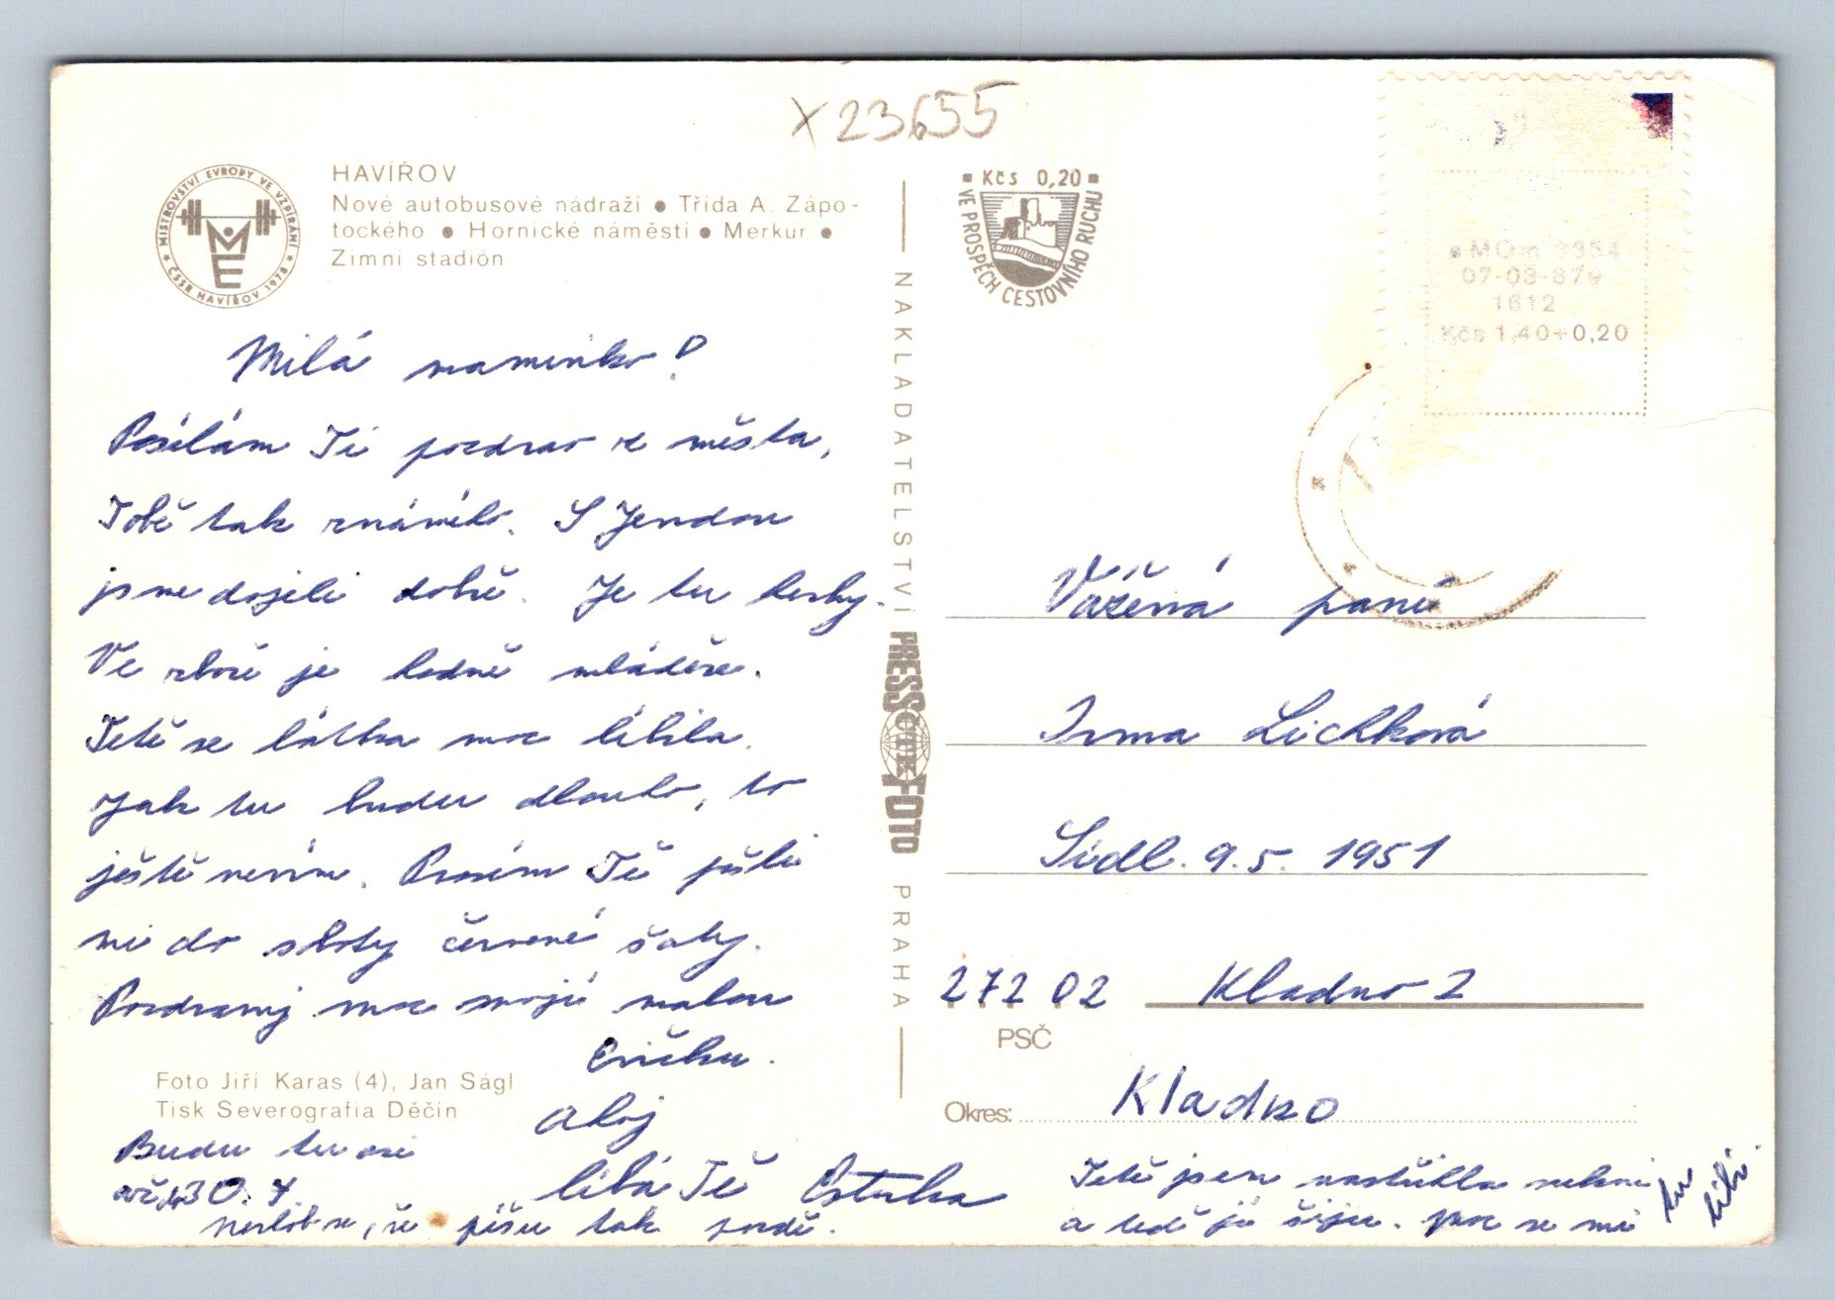 X 23655
MISTROVSTVÍ EVROPY VE VZPÍRÁNÍ
ČSSR HAVÍŘOV 1978
ME
HAVÍŘOV
Nové autobusové nádraží ● Třída A. Zápo-
tockého ● Hornické náměstí ● Merkur ●
Zimní stadión
Milá maminko!
Posílám Ti pozdrav z města,
Tobě tak známého. S Jendou
jsme dojeli dobře. Je tu hezky.
Ve sboře je hodně mládeže.
Tetě se látka moc líbila.
Jak tu budu dlouho, to
ještě nevím. Prosím Tě pošli
mi do soboty červené šaty.
Pozdravuj moc moji malou
Eričku.
Ahoj
líbá Tě Esterka
Foto Jiří Karas (4), Jan Ságl
Tisk Severografia Děčín
Budu tu asi
do 30. 7.
Nezlob se, že píšu tak pozdě.
NAKLADATELSTVÍ PRESSFOTO PRAHA
ČTK
Kčs 0,20
VE PROSPĚCH CESTOVNÍHO RUCHU
MOm 3354
07-03-879
1612
Kčs 1,40+0,20
Vážená paní
Irma Lichková
Sídl. 9. 5. 1951
272 02 Kladno 2
PSČ
Okres: Kladno
Tetě jsem nastříhla sukni
a teď ji šiju. Moc se mi
tu líbí.